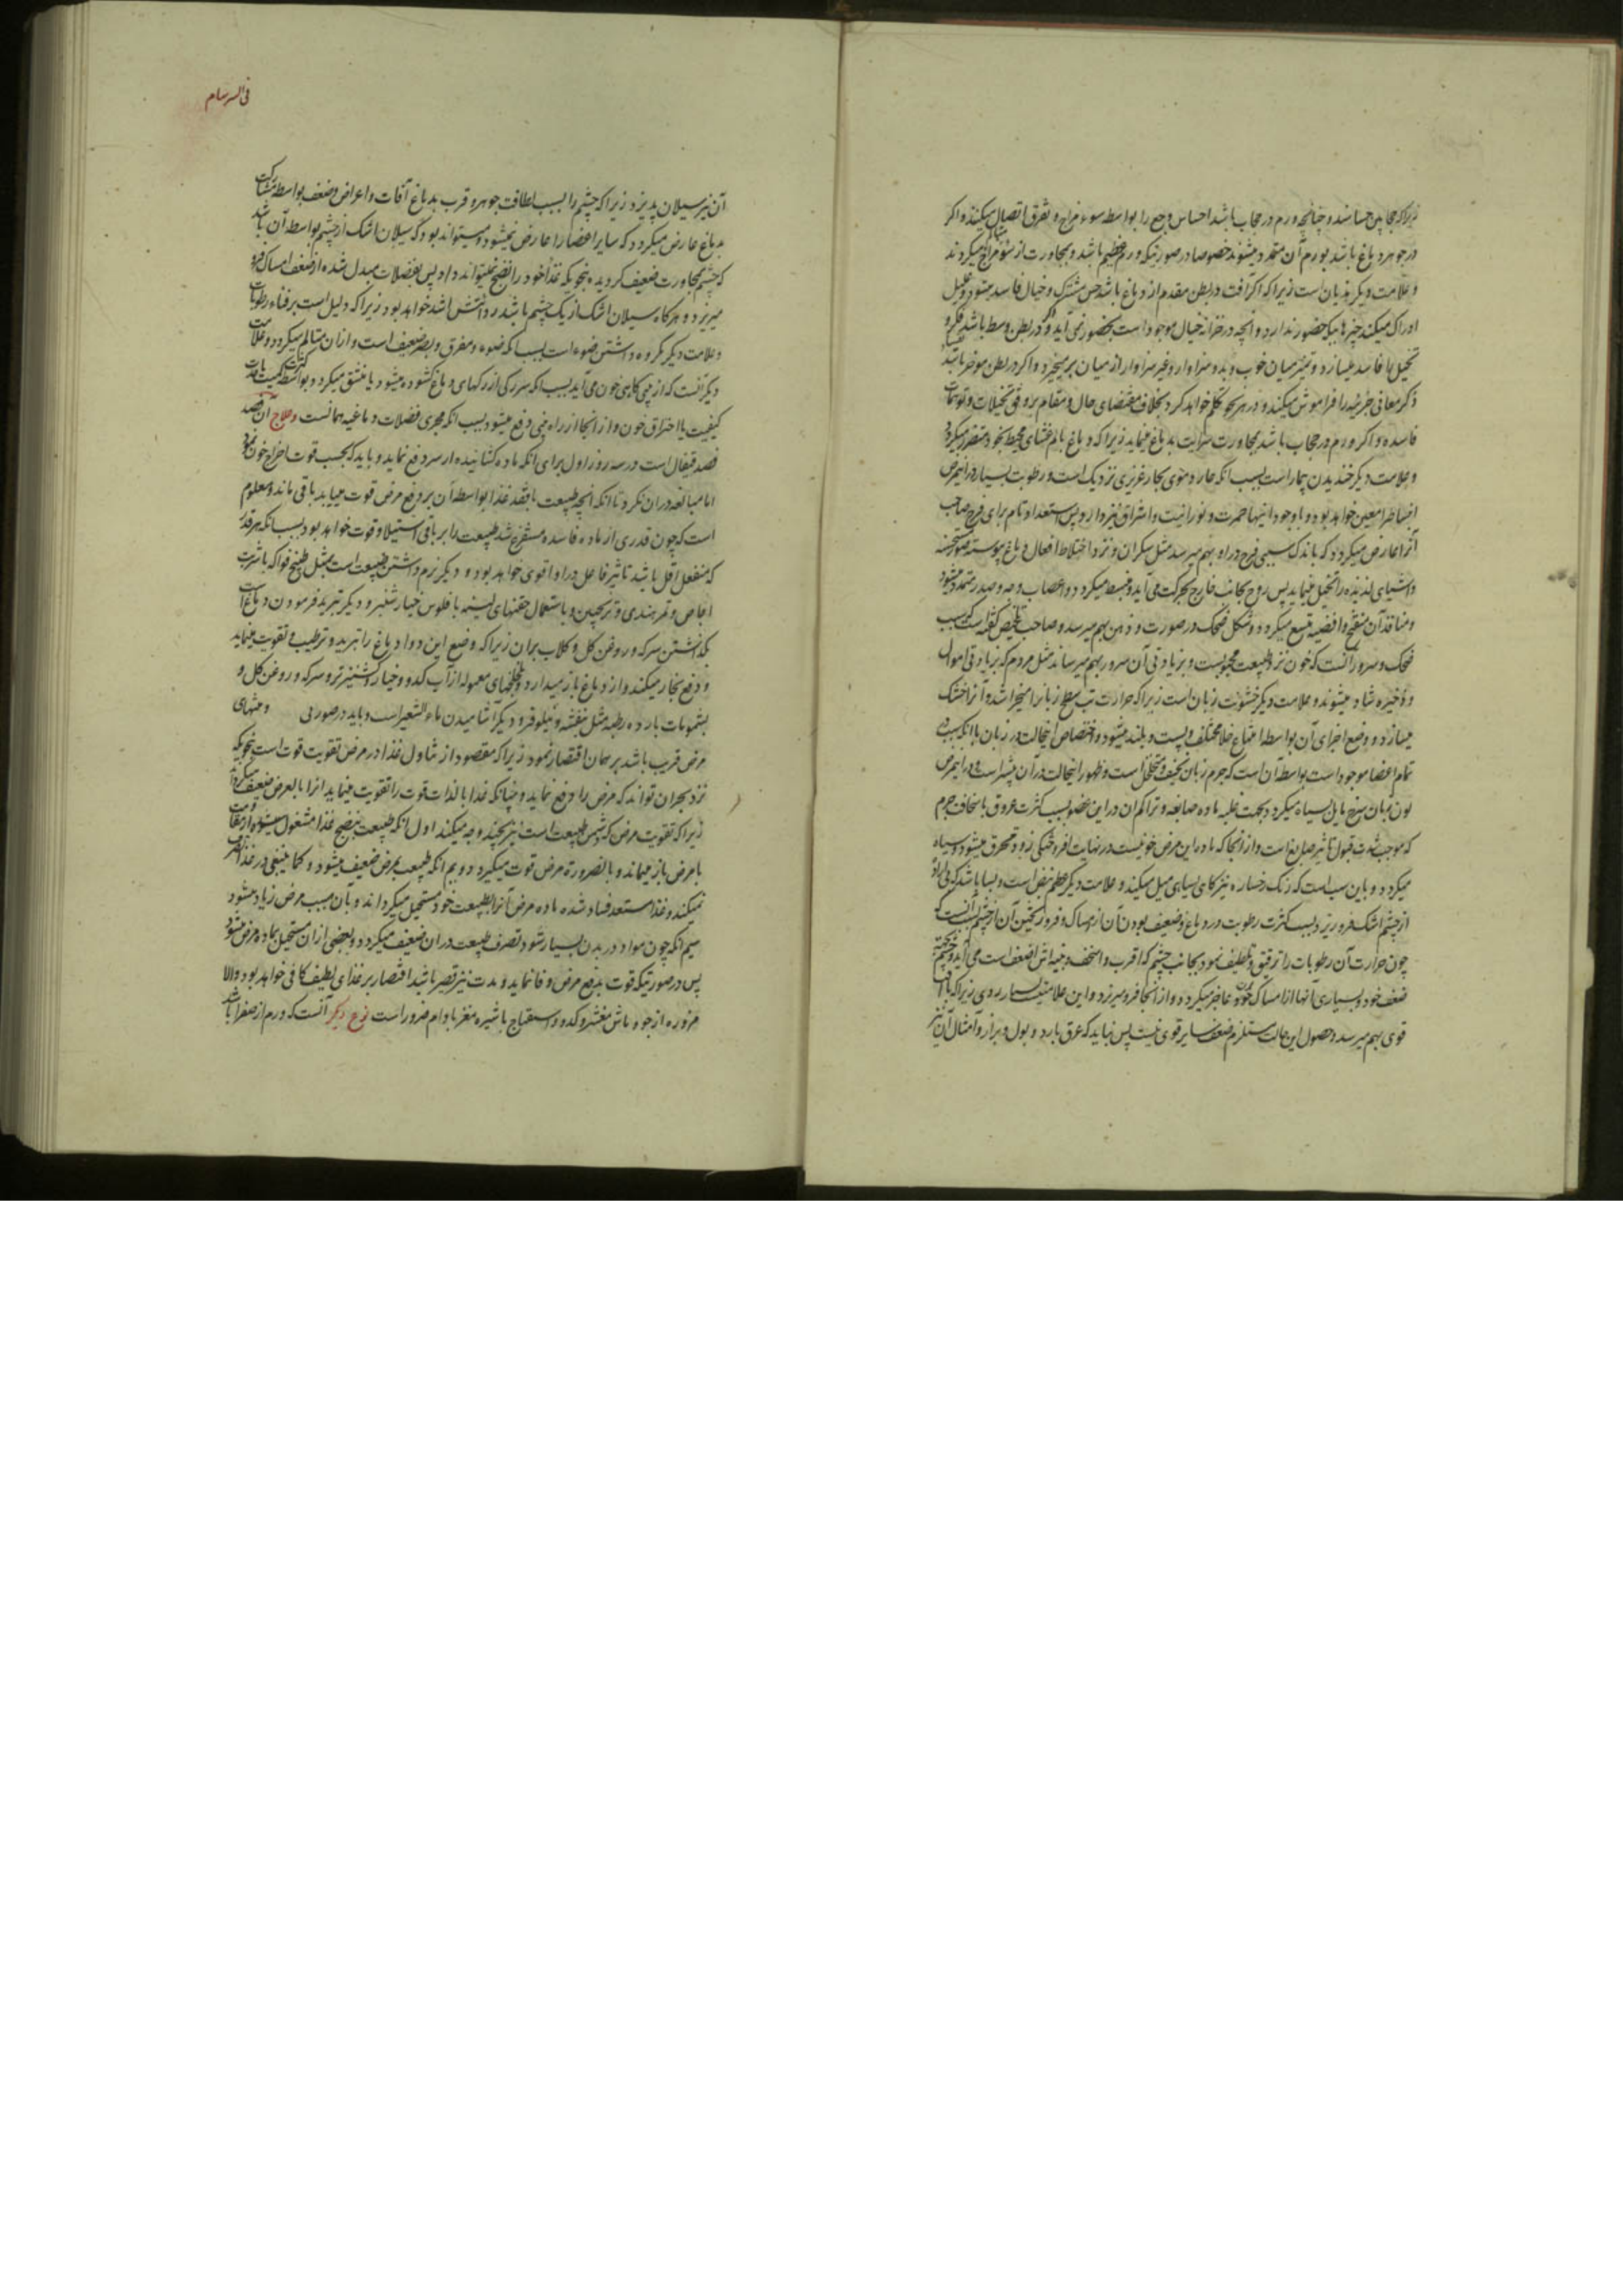 زیرا که حجاب حساسند و چنانچه ورم در حجاب باشد احساس وجع را بواسطه سوء مزاج و تفرق اتصال میکنند و اکر
در جوهر دماغ باشد بورم آن متمدد میشوند خصوصا در صورتیکه ورم عظیم باشد و بمجاورت از سوء مزاج میکردند
و علامت دیکر هذیان است زیرا که اکر آفت در بطن مقدم از دماغ باشد حس مشترک و خیال فاسد میشود و علیل
ادراک میکند چیزهاییکه حضور ندارد و انچه در خزانه خیال موجود است بحضور نمی آید و اکر در بطن وسط باشد فکر و
تخیل ها فاسد میسازد و تمیز میان خوب و بد و سزاوار و غیر سزاوار از میان برمیخیزد و اکر در بطن موخر باشد
ذکر معانی جزئیه را فراموش میکند و در هر نحو تکلم خواهد کرد بخلاف مقتضای حال و مقام بر وفق تخیلات و توهمات
فاسده و اکر ورم در حجاب باشد بمجاورت سرایت بدماغ مینماید زیرا که دماغ بالم غشای محیط بخود متضرر میکردد
و علامت دیکر خندیدن بیمار است بسبب انکه حار دموی بحار غریزی نزدیک است و رطوبت بسیار در اینمرض
انبساط را معین خواهد بود و با وجود اینها حمرت و نورانیت و اشراق نیز دارد پس استعداد تام برای فرح صاحب
آنرا عارض میکردد که باندک سببی فرح در او بهم میرسد مثل سکران و نزد اختلاط افعال دماغ پیوسته صور حسنه
و اشیای لذیذه را تخیل مینماید پس روح بجانب خارج بحرکت می آید و منبسط میکردد و اعصاب وجه و صدر متمدد میشود
و منافذ آن منفتح و افضیه متسع میکردد و شکل ضحک در صورت و دهن بهم میرسد و صاحب تلخیص کفته است که سبب
ضحک و سرور آنست که خون نزد طبیعت محبوبست و بزیادتی آن سرور بهم میرساند مثل مردم که بزیادتی اموال
و ذخیره شاد میشوند و علامت دیکر خشونت زبان است زیرا که حرارت تب سطح زبانرا میخراشد و آنرا خشک
میسازد و وضع اجزای آن بواسطه امتناع خلا مختلف و پست و بلند میشود و اختصاص اینحالت در زبان با انکه سبب در
تمام اعضا موجود است بواسطه آن است که جرم زبان سخیف و متخلخل است و ظهور اینحالت در آن بیشتر است و در اینمرض
لون زبان سرخ مایل بسیاه میکردد بجهت غلبه ماده صابغه و تراکم ان در این عضو بسبب کثرت عروق با سخافت جرم
که موجب شدت قبول تاثیر صابغ است و از انجا که ماده این مرض خونیست در نهایت افروختکی زود محترق میشود و سیاه
میکردد و باین سبب است که رنک رخساره نیز کاهی بسیاهی میل میکند و علامت دیکر عظم نبض است و بسا باشد که بی اراده
از چشم اشک فرو ریزد بسبب کثرت رطوبت در دماغ و ضعیف بودن آن از امساک و فرو ریختن آن از چشم بسبب آنست که
چون حرارت آن رطوبات را ترقیق و تلطیف نمود بجانب چشم که اقرب و اسخف و بنیه اش اضعف است می آید و چشم بجهت
ضعف خود و بسیاری آنها از امساک خود عاجز میکردد و از انجا فرو میریزد و این علامتیست بسیار بد زیرا که با آفت
قوی بهم میرسد و حصول این حالت مستلزم ضعف سایر قوی نیست پس نباید که عرق بارد و بول و براز و امثال آن نیز
فی السرسام
آن نیز سیلان پذیرد زیرا که چشم را بسبب لطافت جوهر و قرب بدماغ آفات و اعراض و ضعف بواسطه مشارکت
بدماغ عارض میکردد که سایر اعضا را عارض نمیشود و میتواند بود که سیلان اشک از چشم بواسطه آن باشد
که چشم بمجاورت ضعیف کردیده بنحویکه غذا خود را نضج نمیتواند داد پس بفضلات مبدل شده از ضعف امساک فرو
میریزد و هرکاه سیلان اشک از یک چشم باشد ردائتش اشد خواهد بود زیرا که دلیل است بر فناء رطوبات
و علامت دیکر مکروه داشتن ضوء است بسبب انکه ضوء مفرق و بصر ضعیف است و ازان متالم میکردد و علامت
دیکر آنست که از بینی کاهی خون می آید بسبب انکه سر رکی از رکهای دماغ کشوده میشود یا منشق میکردد بواسطه کثرت کمیت یا حدت
کیفیت یا احتراق خون و از انجا از راه بینی دفع میشود بسبب انکه مجری فضلات دماغیه همانست و علاج آن قصد
فصد قیفال است در سه روز اول برای انکه ماده کشانیده از سر دفع نماید و باید که بحسب قوت اخراج خون نمود
اما مبالغه دران نکرد تا انکه انچه طبیعت با فقد غذا بواسطه آن بر دفع مرض قوت مییابد باقی ماند و معلوم
است که چون قدری از ماده فاسده مستفرغ شد طبیعت را بر باقی استیلا و قوت خواهد بود بسبب انکه هر قدر
که منفعل اقل باشد تاثیر فاعل در او اقوی خواهد بود و دیکر نرم داشتن طبیعت است بمثل طبیخ فواکه با شربت
اجاص و تمر هندی و ترنجبین و باستعمال حقنهای لینه با فلوس خیار شنبر و دیکر تبرید فرمودن دماغ است
بکذاشتن سرکه و روغن کل و کلاب بران زیرا که وضع این دوا دماغ را تبرید و ترطیب و تقویت مینماید
و دفع بخار میکند و از دماغ باز میدارد و لخلخهای معموله از آب کدو و خیار و کشنیز تر و سرکه و روغن کل و
بشمومات بارده رطبه مثل بنفشه و نیلوفر و دیکر آشامیدن ماء الشعیر است و باید در صورتی و منتهای
مرض قریب باشد بر همان اقتصار نمود زیرا که مقصود از تناول غذا در مرض تقویت قوت است بنحویکه
نزد بحران تواند که مرض را دفع نماید و چنانکه غذا بالذات قوت را تقویت مینماید انرا بالعرض ضعیف میکرداند
زیرا که تقویت مرض که دشمن طبیعت است نیز بچند وجه میکند اول انکه طبیعت بنضج غذا مشغول میشود و از مقاومت
با مرض باز میماند و بالضروره مرض قوت میکیرد دویم انکه طبیعت بمرض ضعیف میشود و کما ینبغی در غذا تصرف
نمیکند و غذا مستعد فساد شده ماده مرض آنرا بطبیعت خود مستحیل میکرداند و بآن سبب مرض زیاد میشود
سیم انکه چون مواد در بدن بسیار شود تصرف طبیعت دران ضعیف میکردد و بعضی ازان مستحیل بماده مرض میشود
پس در صورتیکه قوت بدفع مرض وفا نماید و مدت نیز قصیر باشد اقتصار بر غذای لطیف کافی خواهد بود والا
مزوره از جو و ماش مقشر و کدو و اسفناج با شیره مغز بادام ضرور است نوع دیکر آنست که ورم از صفرا باشد